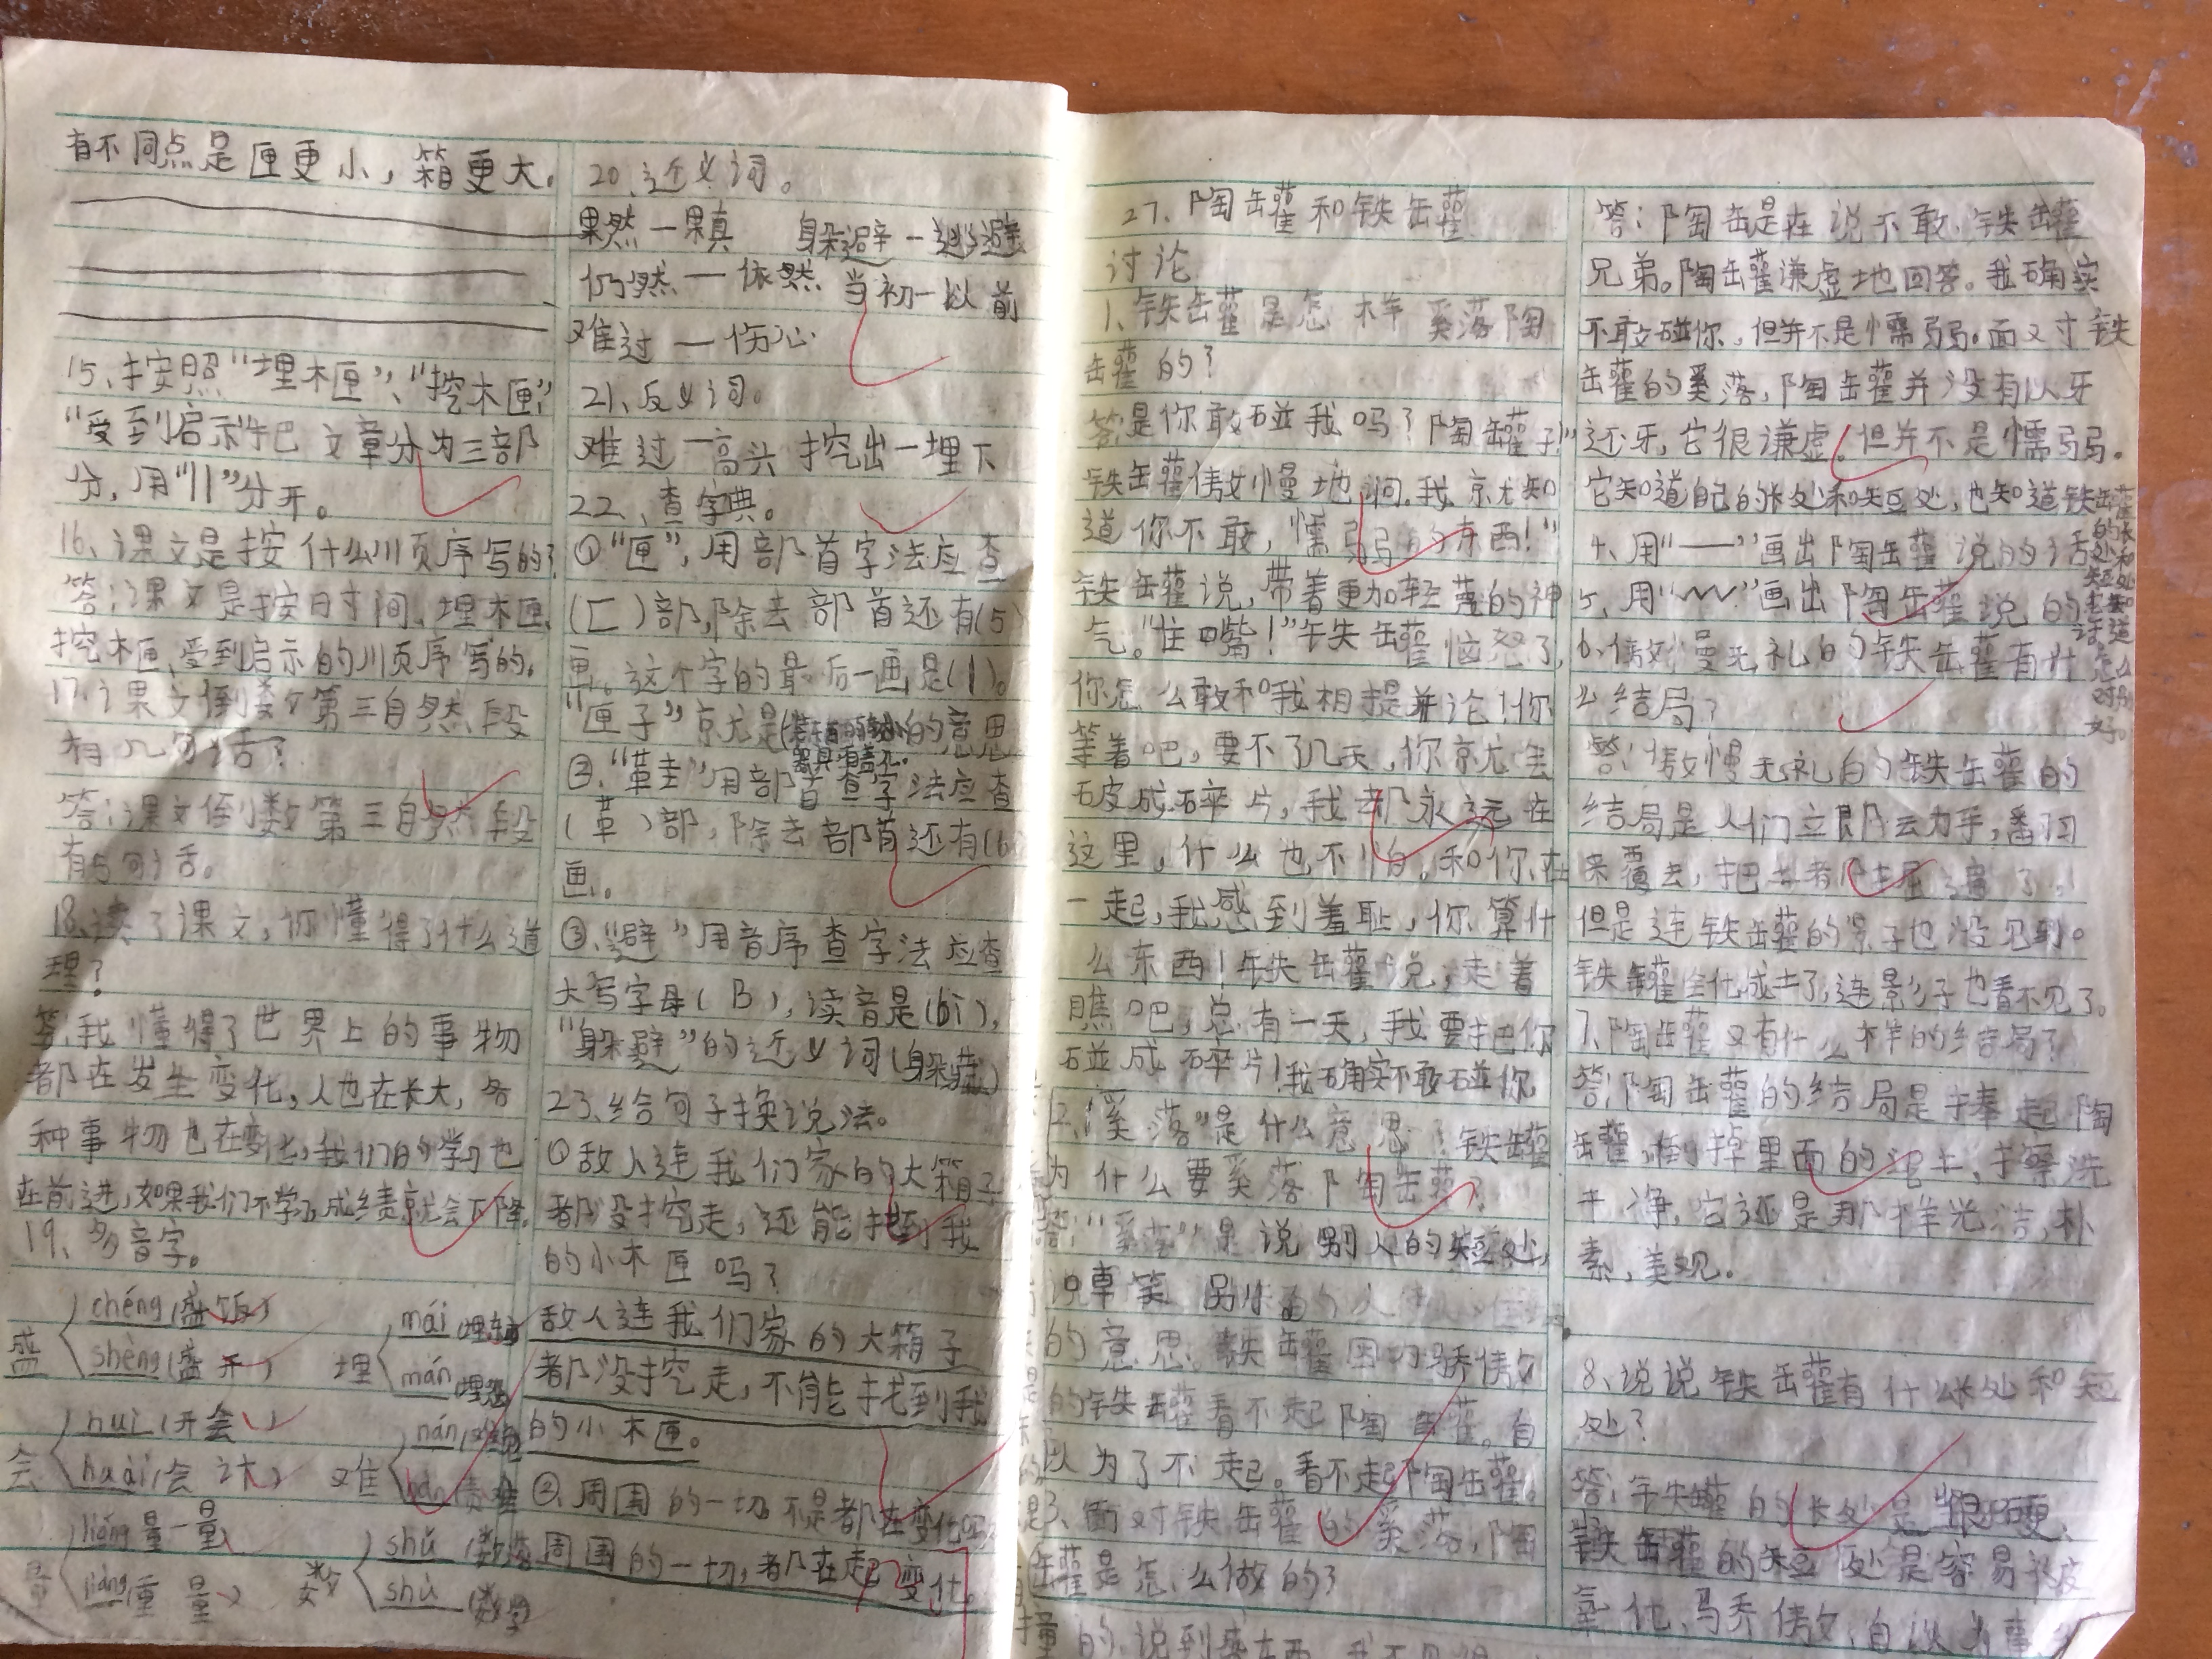 有不同点是匣更小，箱更大。
15、按照“埋木匣”、“挖木匣”
“受到启示”把文章分为三部
分，用“||”分开。
16、课文是按什么顺序写的?
答:课文是按时间，埋木匣、
挖木匣、受到启示的顺序写的。
17、课文倒数第三自然段
有几句话?
答:课文倒数第三自然段
有5句话。
18、读了课文，你懂得了什么道
理?
答:我懂得了世界上的事物
都在发生变化，人也在长大，各
种事物也在变化，我们的学习也
在前进，如果我们不学习，成绩就会下降。
19、多音字。
盛 chéng(盛饭)
shèng(盛开)
埋 mái
mán
会 huì(开会)
kuài(会计)
难 nán
nàn
量 liáng 量一量
liàng(重量)
数 shǔ
shù (数学
20、近义词。
果然—果真 躲避—逃避
仍然—依然 当初—以前
难过—伤心
21、反义词。
难过—高兴 挖出—埋下
22、查字典。
①“匣”，用部首字法应查
(匚)部，除去部首还有(5)
画。这个字的最后一画是(丨)。
“匣子”就是 的意思
②、 用部首查字法应查
(革)部，除去部首还有(6
画。
③、“避”用音序查字法应查
大写字母(B)，读音是(bì)，
“躲避”的近义词(躲藏)
23、给句子换说法。
①敌人连我们家的大箱子
都没挖走，还能找到我
的小木匣吗?
敌人连我们家的大箱子
都没挖走，不能找到我
的小木匣。
②、周围的一切不是都在变化吗
周围的一切，都在起变化。
27、陶罐和铁罐
讨论
1、铁罐是怎样奚落陶
罐的?
答是你敢碰我吗?陶罐子!”
铁罐傲慢地问。我就知
道你不敢，懦弱的东西!”
铁罐说，带着更加轻蔑的神
气。“住嘴!”铁罐恼怒了，
你怎么敢和我相提并论!你
等着吧，要不了几天，你就会
破成碎片，我却永远在
这里，什么也不怕。和你在
一起，我感到羞耻，你算什
么东西!铁罐说，走着
瞧吧，总有一天，我要把你
碰成碎片!我确实不敢碰你
2、“奚落”是什么意思?铁罐
为什么要奚落陶罐?
答:“奚落”是说别人的短处，
的意思。铁罐因为骄傲
的铁罐看不起陶罐。自
以为了不起。看不起陶罐。
3、面对铁罐的奚落，陶
罐是怎么做的?
答:陶罐是在说不敢，铁罐
兄弟。陶罐谦虚地回答。我确实
不敢碰你，但并不是懦弱。面对铁
罐的奚落，陶罐并没有以牙
还牙，它很谦虚，但并不是懦弱。
它知道自己的长处和短处，也知道铁罐
4、用“——”画出陶罐说的话
5、用“﹏﹏”画出陶罐说的
6、傲慢无礼的铁罐有什
么结局?
答:傲慢无礼的铁罐的
结局是人们立即动手，翻
来覆去，把 了。
但是连铁罐的影子也没见到。
铁罐全化成土了，连影子也看不见了。
7、陶罐又有什么样的结局?
答:陶罐的结局是捧起陶
罐，倒掉里面的泥土，擦洗
干净，它还是那样光洁，朴
素，美观。
8、说说铁罐有什么长处和短
处?
答:铁罐的长处是很硬，
铁罐的短处是容易被
氧化，骄傲，自以为